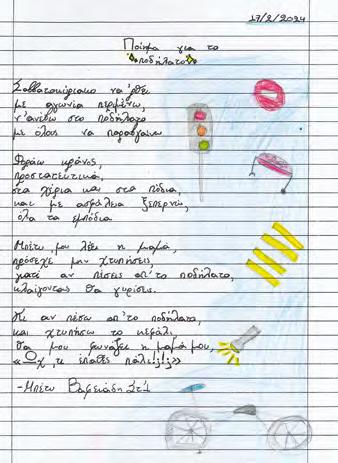 17/2/2024
Ποίημα για το
ποδήλατο
Σαββατοκύριακο να 'ρθει
με αγωνία περιμένω,
ν'ανέβω στο ποδήλατο
με όλους να παραβγαίνω
Φοράω κράνος,
προστατευτικά,
στα χέρια και στα πόδια,
και με ασφάλεια ξεπερνώ,
όλα τα εμπόδια
Μπέτυ μου λέει η μαμά,
πρόσεχε μην χτυπήσεις,
γιατί αν πέσεις απ'το ποδήλατο,
κλαίγοντας θα γυρίσεις.
Κι αν πέσω απ'το ποδήλατο,
και χτυπήσω το κεφάλι,
θα μου φωνάζει η μαμά μου,
«Ωχ, τι έπαθες πάλι!;!;»
-Μπέτυ Στ'1